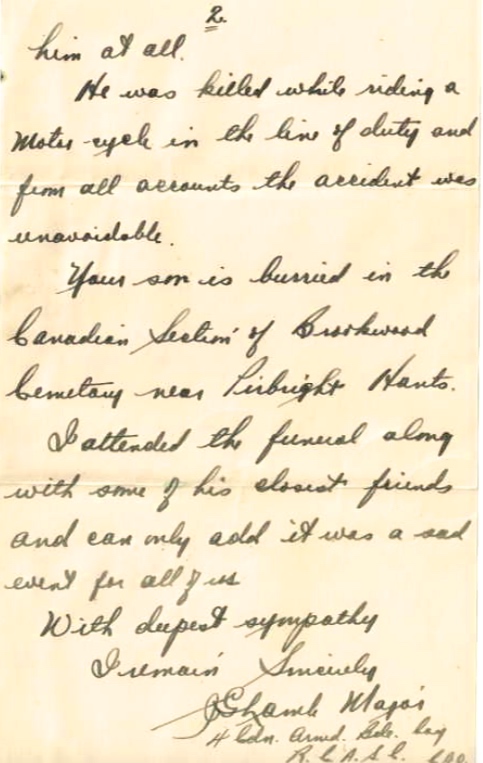 2.
him at all.
He was killed while riding a
Motor-cycle in the line of duty and
from all accounts the accident was
unavoidable.
Your son is burried in the
Canadian Section of Brookwood
Cemetary near Pirbright Hants.
I attended the funeral along
with some of his closest friends
and can only add it was a sad
event for all of us
With deepest sympathy
I remain Sincerely
Major
4 Cdn. Armd. Bde. Coy
R.C.A.S.C.